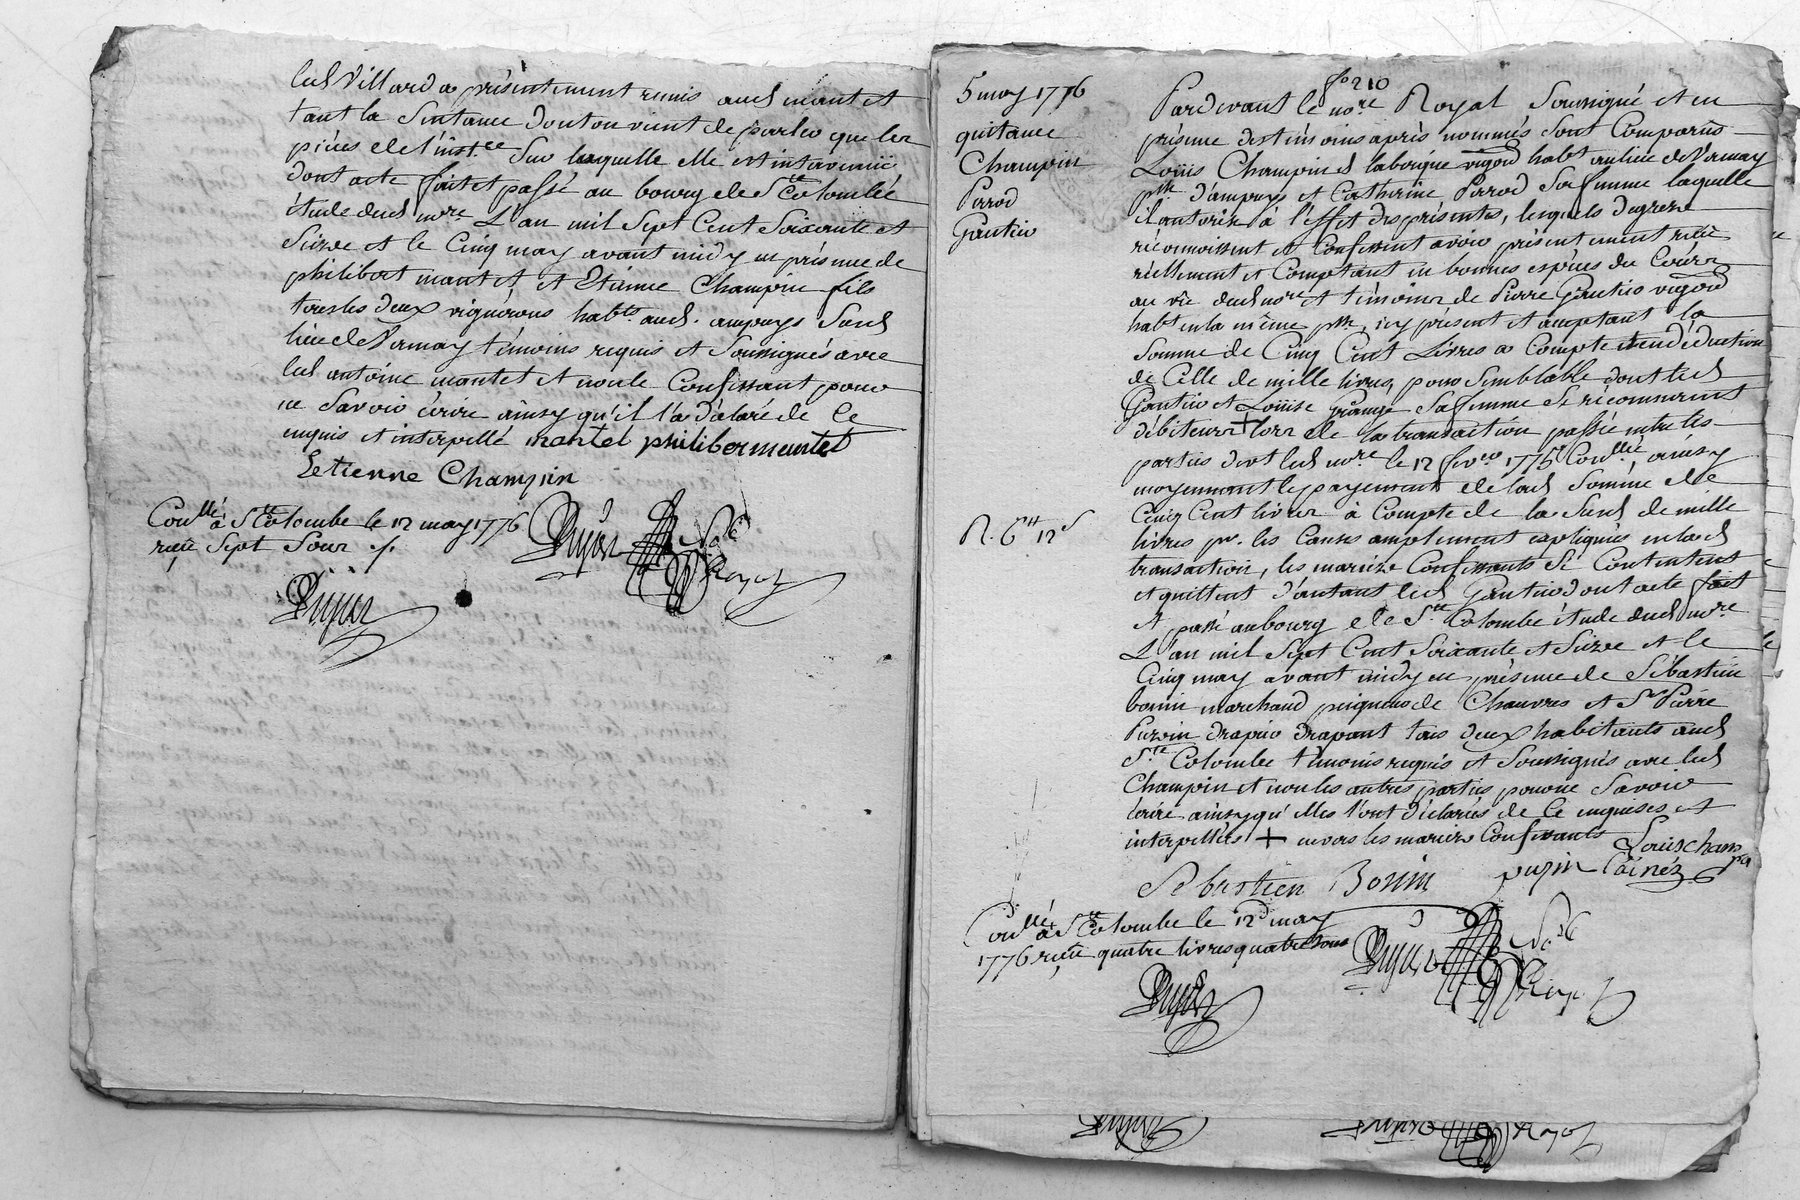 led Villard a présentement remis aud mantet
tant la Sentance dont on vient de parler que les
pièces de l'inst.ce Sur laquelle elle est intervenüe
dont acte fait et passé au bourg de Ste Colombe
étude dud nore L'an mil Sept Cent Soixante et
Seize et le Cinq may avant midy en présence de
philibert mantet et Etienne Champin fils
tous les deux vignérons habts aud. ampuys Sud
lieu de Vernay témoins requis et Soussignés avec
led antoine mantet et non le Confessant pour
ne Savoir écrire ainsy qu'il l'a déclaré de Ce
enquis et interpellé mantel philiber mantet
Letienne Champin
Conllé à Ste Colombe le 12 may 1776
reçu Sept Sour ./.
Royal
fo 210
5 may 1776
quitance
Champin
Perrod
Gautier
Pardevant le nore Royal Soussigné et en
présence des témoins après nommés Sont Comparus
Loüis Champin d laborigne vigon habt au lieu de Vernay
psse d'ampuys et Catherine Perrod Sa femme laquelle
il autorise à l'effet des présentes, lesquels de grez
réconnoissent et Confessent avoir présentement reçu
réellement et Comptant en bonnes espèces du Cours
au vû dud nore et témoins de Pierre Gautier vigon
habt en la même psse, icy présent et acceptant la
Somme de Cinq Cent Livres a Compte et en déduction
de Celle de mille livres pour Semblable dont led
Gautier et Loüise Grange Sa femme Se réconnurent
débiteurs + lors de la transaction passée entre les
parties devt led nore le 12 fevrer 1775 Conllé, ainsy
moyennant le payement de lad Somme de
Cinq Cent livres a Compte de la Sud de mille
livres pr. les Causes amplement expliquées en lad
transaction, les mariés Confessants Se Contentent
et quittent d'autant led Gautier dont acte fait
et passé au bourg de Ste Colombe étude dud nore
L'an mil Sept Cent Soixante et Seize et le
Cinq may avant midy en présence de Sébastien
bonin marchand peigneur de Chanvres et Sr Pierre
Puzin drapier drapant tous deux habitants aud
Ste Colombe témoins requis et Soussignés avec led
Champin et non les autres parties pour ne Savoir
écrire ainsy qu'elles l'ont déclarées de Ce enquises et
interpellées + envers les mariés Confessants Louis cham
pin
Sebastien Bonin puzin l'ainéz
R. 6tt 12s
Conllé à Ste Colombe le 12 may
1776 reçu quatre livres quatre Sous
Royal
Royal